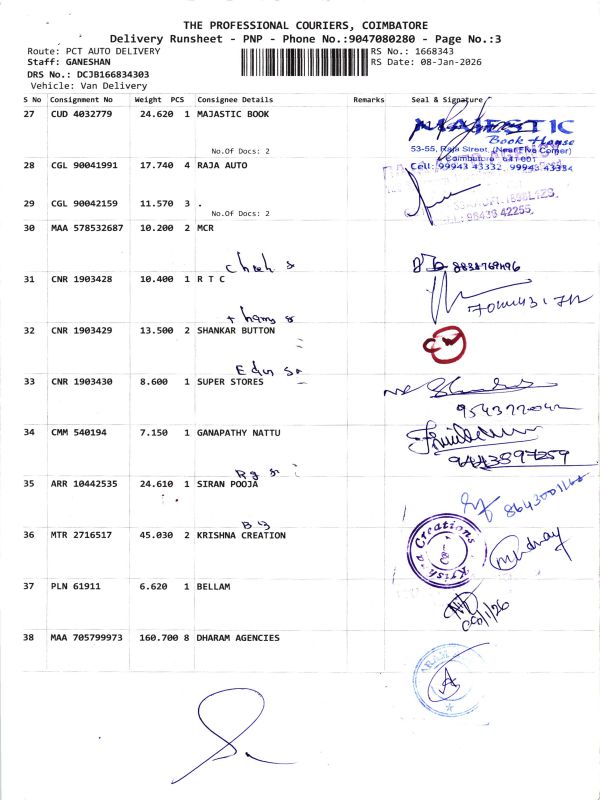 THE PROFESSIONAL COURIERS, COIMBATORE
Delivery Runsheet - PNP - Phone No.:9047080280 - Page No.:3
Route: PCT AUTO DELIVERY
RS No.: 1668343
Staff: GANESHAN
RS Date: 08-Jan-2026
DRS No.: DCJB166834303
Vehicle: Van Delivery
S No Consignment No Weight PCS Consignee Details Remarks Seal & Signature
27 CUD 4032779 24.620 1 MAJASTIC BOOK
No.Of Docs: 2
MAJESTIC
Book House
53-55, Raja Street, (Near Five Corner)
Coimbatore - 641 001
Cell: 99943 43332, 99943 43334
28 CGL 90041991 17.740 4 RAJA AUTO
29 CGL 90042159 11.570 3 .
No.Of Docs: 2
98430 42255
30 MAA 578532687 10.200 2 MCR
31 CNR 1903428 10.400 1 R T C
32 CNR 1903429 13.500 2 SHANKAR BUTTON
33 CNR 1903430 8.600 1 SUPER STORES
34 CMM 540194 7.150 1 GANAPATHY NATTU
9443597259
35 ARR 10442535 24.610 1 SIRAN POOJA
36 MTR 2716517 45.030 2 KRISHNA CREATION
Krishna Creations
37 PLN 61911 6.620 1 BELLAM
38 MAA 705799973 160.700 8 DHARAM AGENCIES